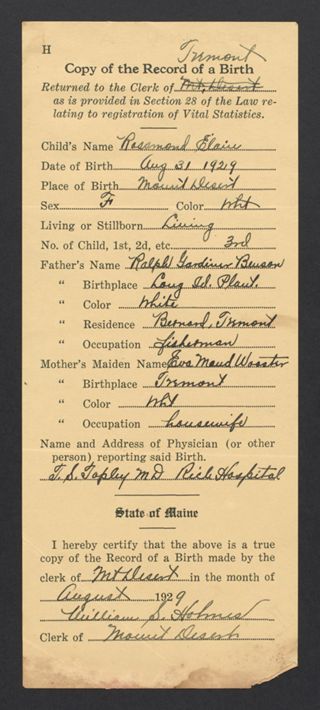 Tremont
H
Copy of the Record of a Birth
Returned to the Clerk of Mt. Desert
as is provided in Section 28 of the Law re-
lating to registration of Vital Statistics.
Child's Name Rosamond Elaine
Date of Birth Aug 31 1929
Place of Birth Mount Desert
Sex F Color Wht
Living or Stillborn Living
No. of Child, 1st, 2d, etc. 3rd
Father's Name Ralph Gardiner Benson
" Birthplace Long Id. Plant.
" Color White
" Residence Bernard, Tremont
" Occupation fisherman
Mother's Maiden Name Eva Maud Wooster
" Birthplace Tremont
" Color Wht
" Occupation housewife
Name and Address of Physician (or other
person) reporting said Birth.
T. S. Tapley MD Rich Hospital
State of Maine
I hereby certify that the above is a true
copy of the Record of a Birth made by the
clerk of Mt Desert in the month of
August 1929
William S. Holmes
Clerk of Mount Desert